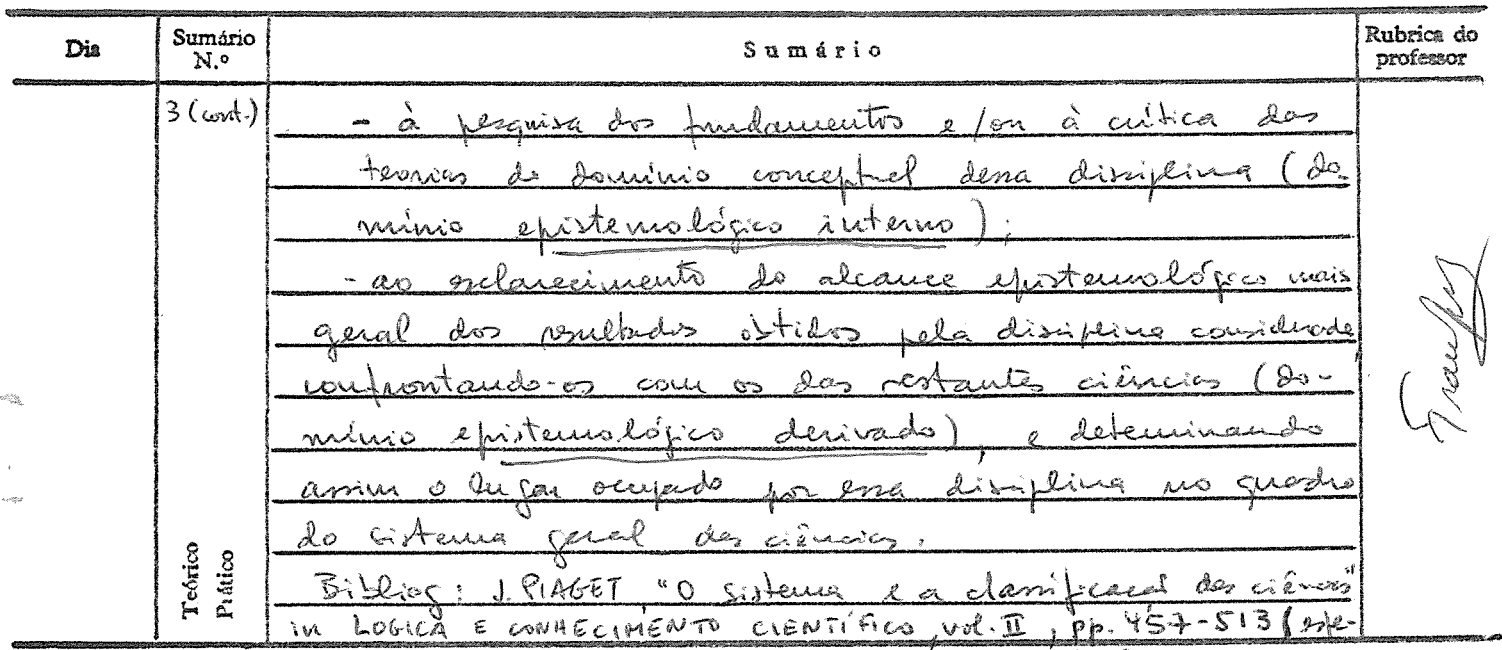 Dia Sumário N.º Sumário Rubrica do professor
3 (cont.)
- à pesquisa dos fundamentos e/ou à crítica das
teorias do domínio conceptual dessa disciplina (do-
mínio epistemológico interno);
- ao esclarecimento do alcance epistemológico mais
geral dos resultados obtidos pela disciplina considerada,
confrontando-os com os das restantes ciências (do-
mínio epistemológico derivado), e determinando
assim o lugar ocupado por essa disciplina no quadro
do sistema geral das ciências.
Bibliog: J. PIAGET "O sistema e a classificação das ciências"
in LOGICA E CONHECIMENTO CIENTÍFICO, vol. II, pp. 457-513 (espe-
Teórico
Prático